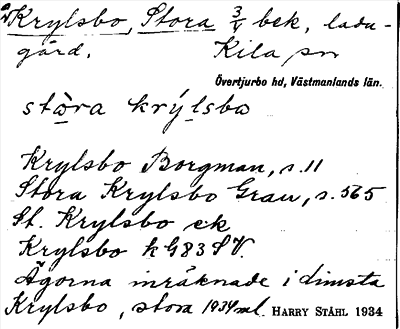 Krylsbo, Stora 3/4 bek, ladu-
gård. Kila sn
Övertjurbo hd, Västmanlands län.
stòra krýlsbo
Krylsbo Borgman, s. 11
Stora Krylsbo Grau, s. 565
St. Krylsbo ek
Krylsbo k G83SV.
Ägorna inräknade i
Krylsbo, stora 1934 ml. HARRY STÅHL 1934